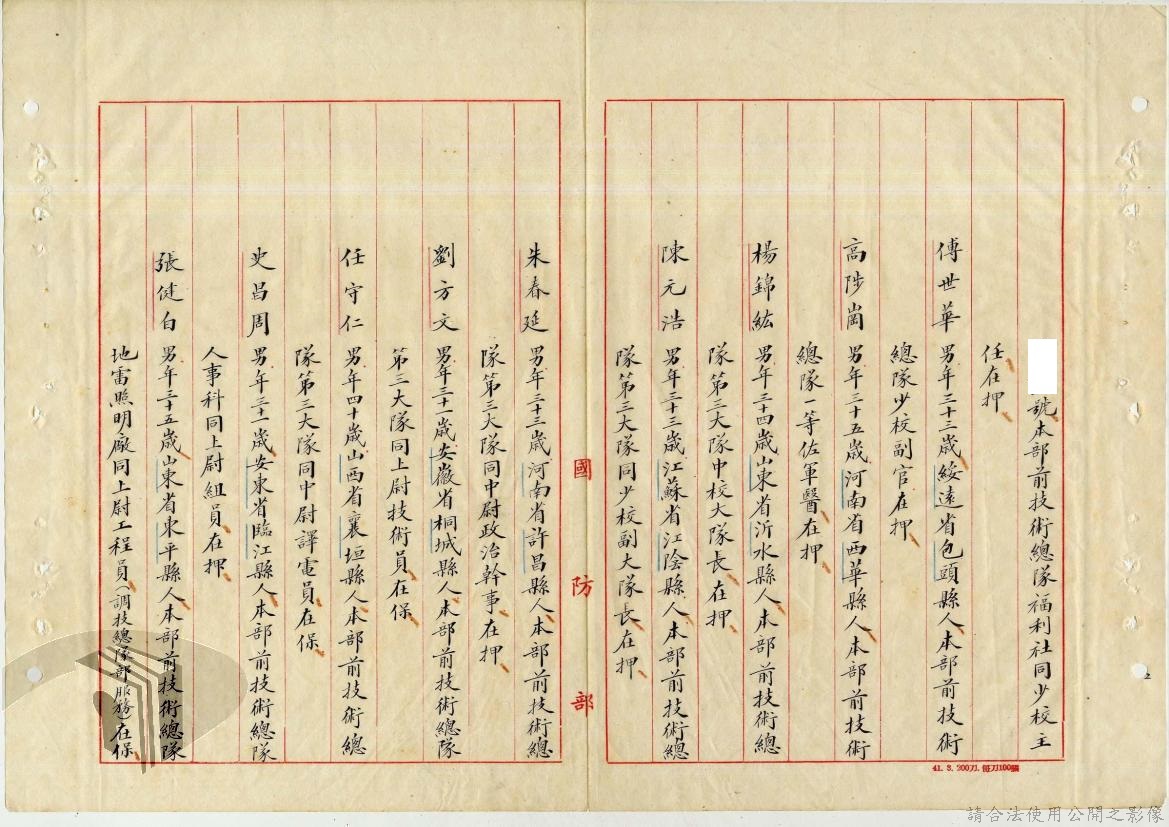 號本部前技術總隊福利社同少校主
任在押
傅世華 男年三十三歲綏遠省包頭縣人本部前技術
總隊少校副官在押
高陟崗 男年三十五歲河南省西華縣人本部前技術
總隊一等佐軍醫在押
楊錦紘 男年三十四歲山東省沂水縣人本部前技術總
隊第三大隊中校大隊長在押
陳元浩 男年三十三歲江蘇省江陰縣人本部前技術總
隊第三大隊同少校副大隊長在押
國防部
朱春延 男年三十三歲河南省許昌縣人本部前技術總
隊第三大隊同中尉政治幹事在押
劉方文 男年三十一歲安徽省桐城縣人本部前技術總隊
第三大隊同上尉技術員在保
任守仁 男年四十歲山西省襄垣縣人本部前技術總
隊第三大隊同中尉譯電員在保
史昌周 男年三十一歲安東省臨江縣人本部前技術總隊
人事科同上尉組員在押
張健白 男年三十五歲山東省東平縣人本部前技術總隊
地雷照明廠同上尉工程員(調技總隊部服務)在保
41. 3. 200刀. 每刀100張
請合法使用公開之影像